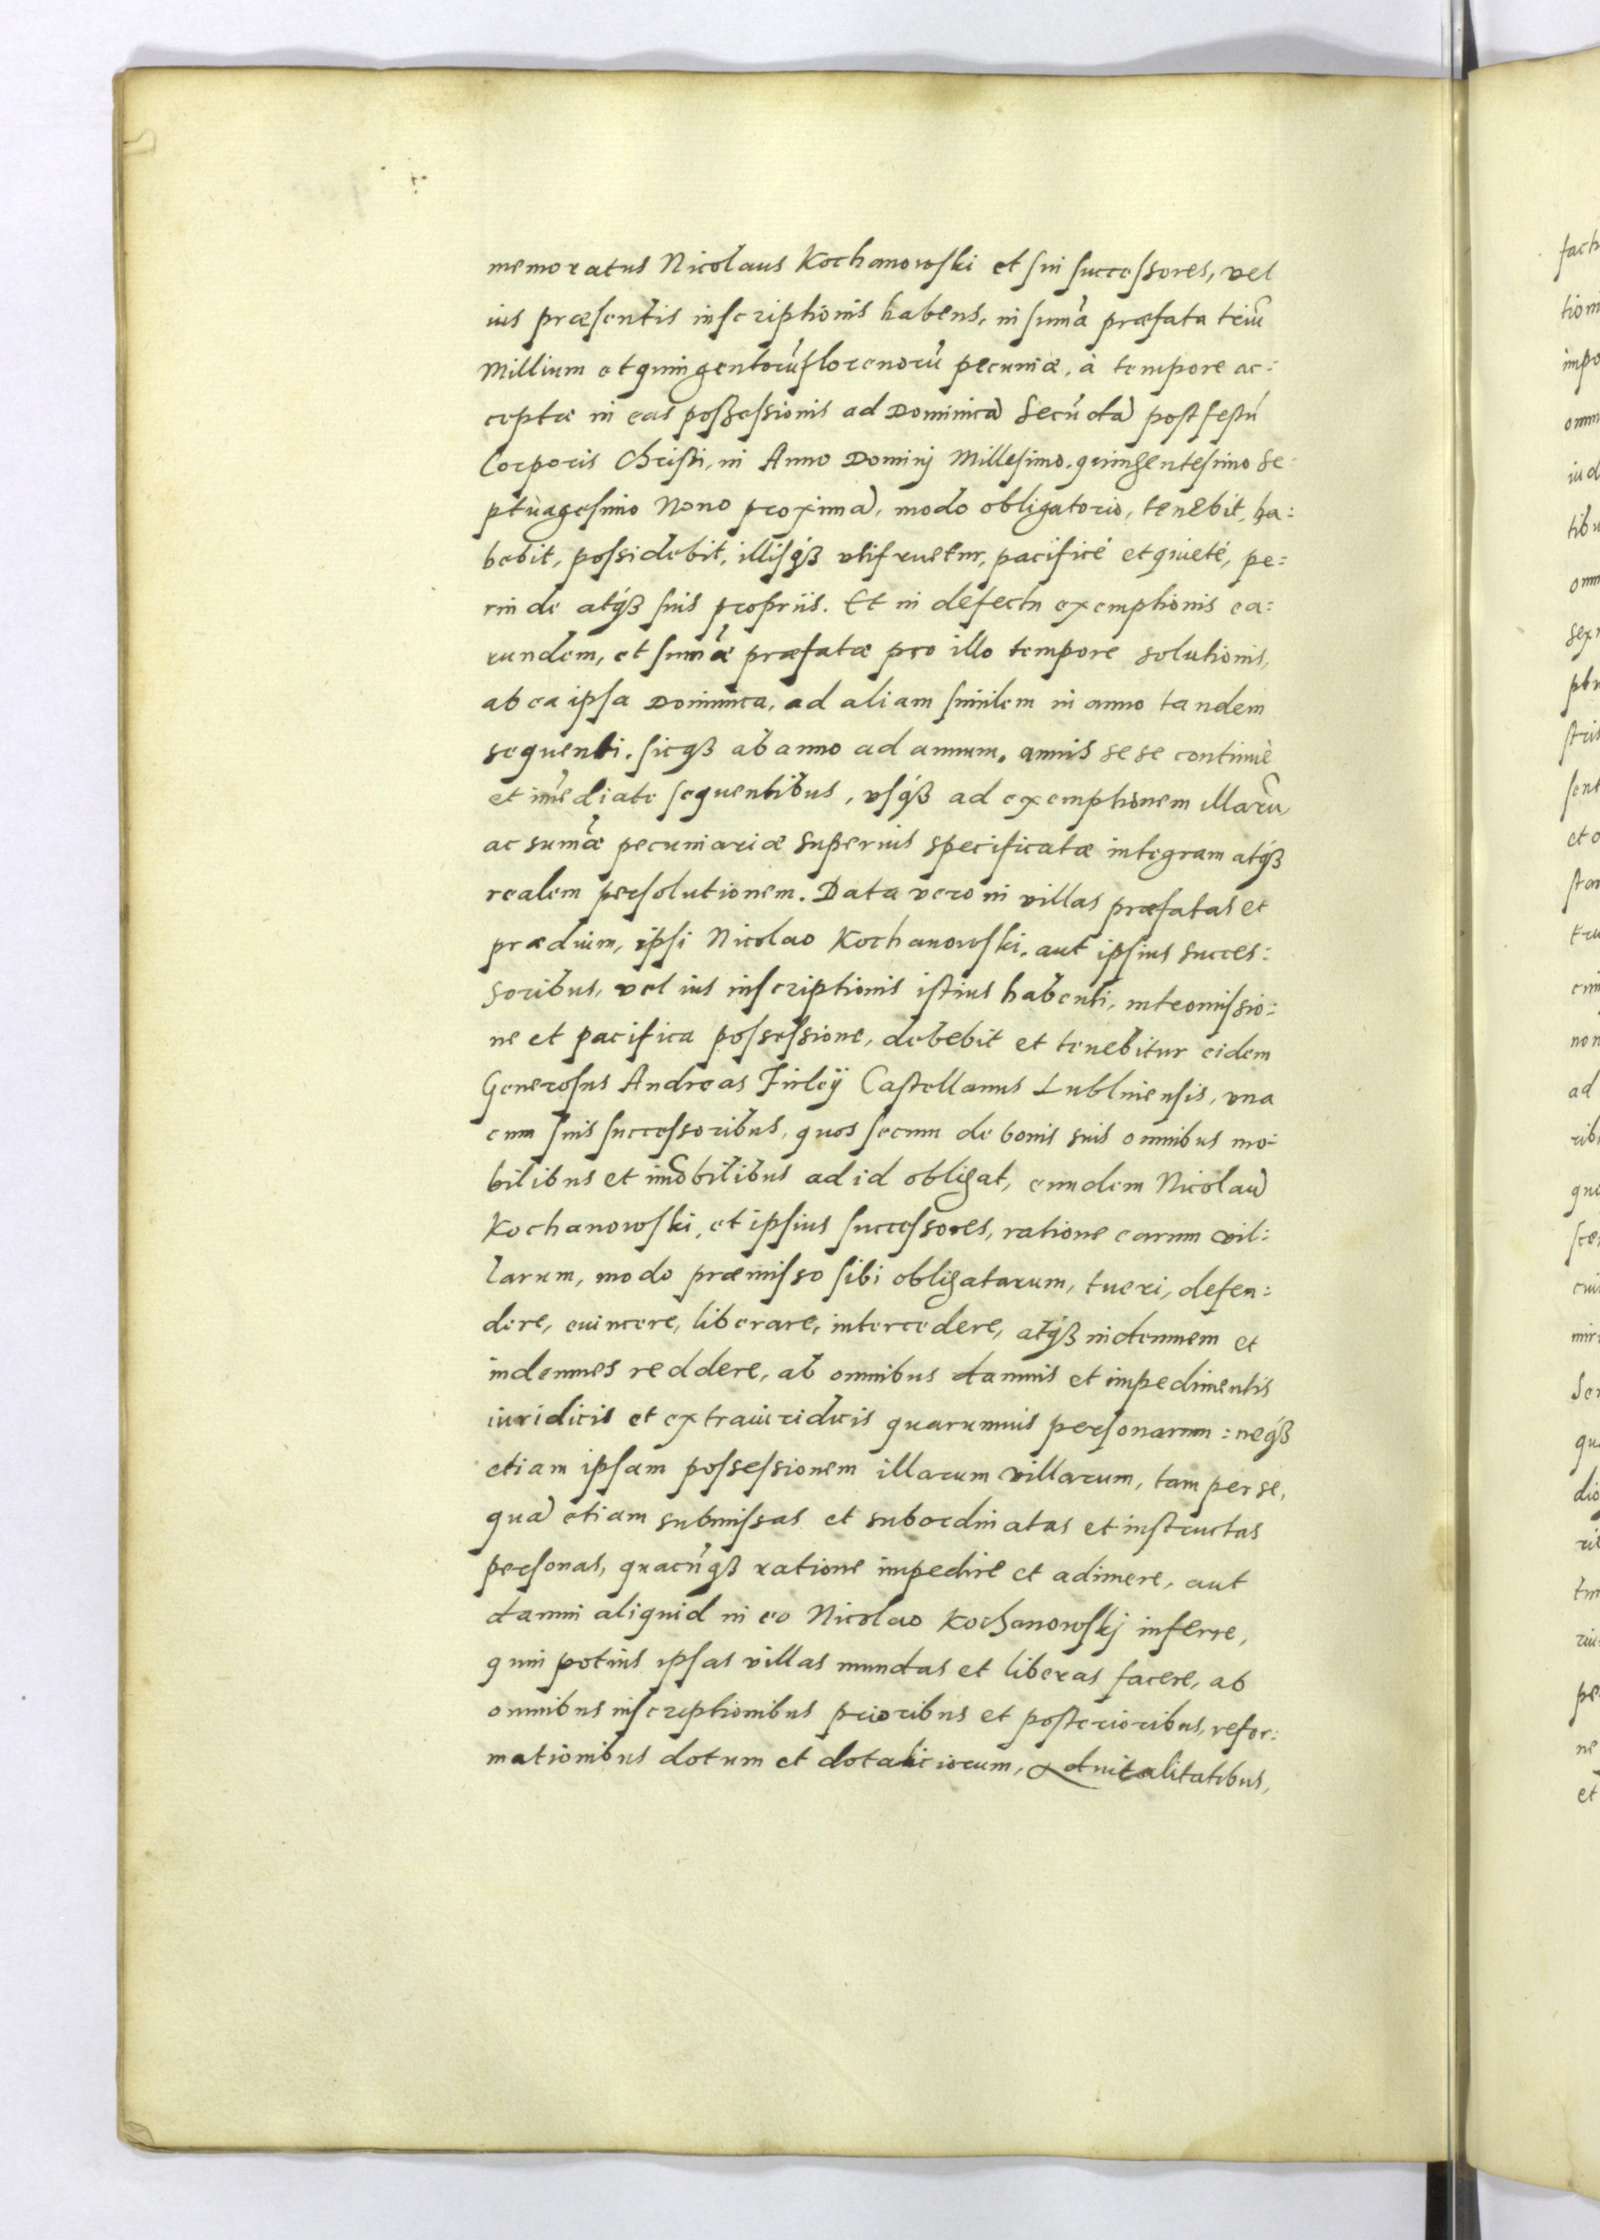 memoratus Nicolaus Kochanowski et sui successores, vel
ius præsentis inscriptionis habens, in sumã præfata triũ
Millium et quingentorũ florenorũ pecuniæ, à tempore ac:
ceptæ in eas possessionis ad Dominicã secũdã post festũ
Corporis Christi, in Anno Dominj Millesimo. quingentesimo se:
ptuagesimo Nono proximã, modo obligatorio, tenebit, ha:
bebit, possidebit, illisqꝫ utifruetur, pacificè et quietè, pe:
rinde atqꝫ suis propriis. Et in defectu exemptionis ea:
rundem, et sumæ̃ præfatæ pro illo tempore solutionis,
ab ea ipsa Dominica, ad aliam similem in anno tandem
sequenti. sicqꝫ ab anno ad annum. annis sese continuè
et im̃ediate sequentibus, usqꝫ ad exemptionem illarũ
ac sumæ̃ pecuniariæ superius specificatæ integram atqꝫ
realem persolutionem. Data vero in villas præfatas et
prædium, ipsi Nicolao Kochanowski. aut ipsius succes:
soribus, vel ius inscriptionis istius habenti, intromissio:
ne et pacifica possessione, debebit et tenebitur eidem
Generosus Andreas Firleÿ Castellanus Lublinensis, una
cum suis successoribus, quos secum de bonis suis omnibus mo:
bilibus et im̃obilibus ad id obligat, eundem Nicolaũ
Kochanowski, et ipsius successores, ratione earum vil:
larum, modo præmisso sibi obligatarum, tueri, defen:
dere, euincere, liberare, intercedere, atqꝫ indemnem et
indemnes reddere, ab omnibus damnis et impedimentis
iuridicis et extraiuridicis quarumuis personarum: neqꝫ
etiam ipsam possessionem illarum villarum, tam per se,
quã etiam submissas et subordinatas et instructas
personas, quacũqꝫ ratione impedire et adimere, aut
damni aliquid in eo Nicolao Kochanowskj inferre,
quin potius ipsas villas mundas et liberas facere, ab
omnibus inscriptionibus prioribus et posterioribus, refor:
mationibus dotum et dotaliciorum, & aduitalitatibus,